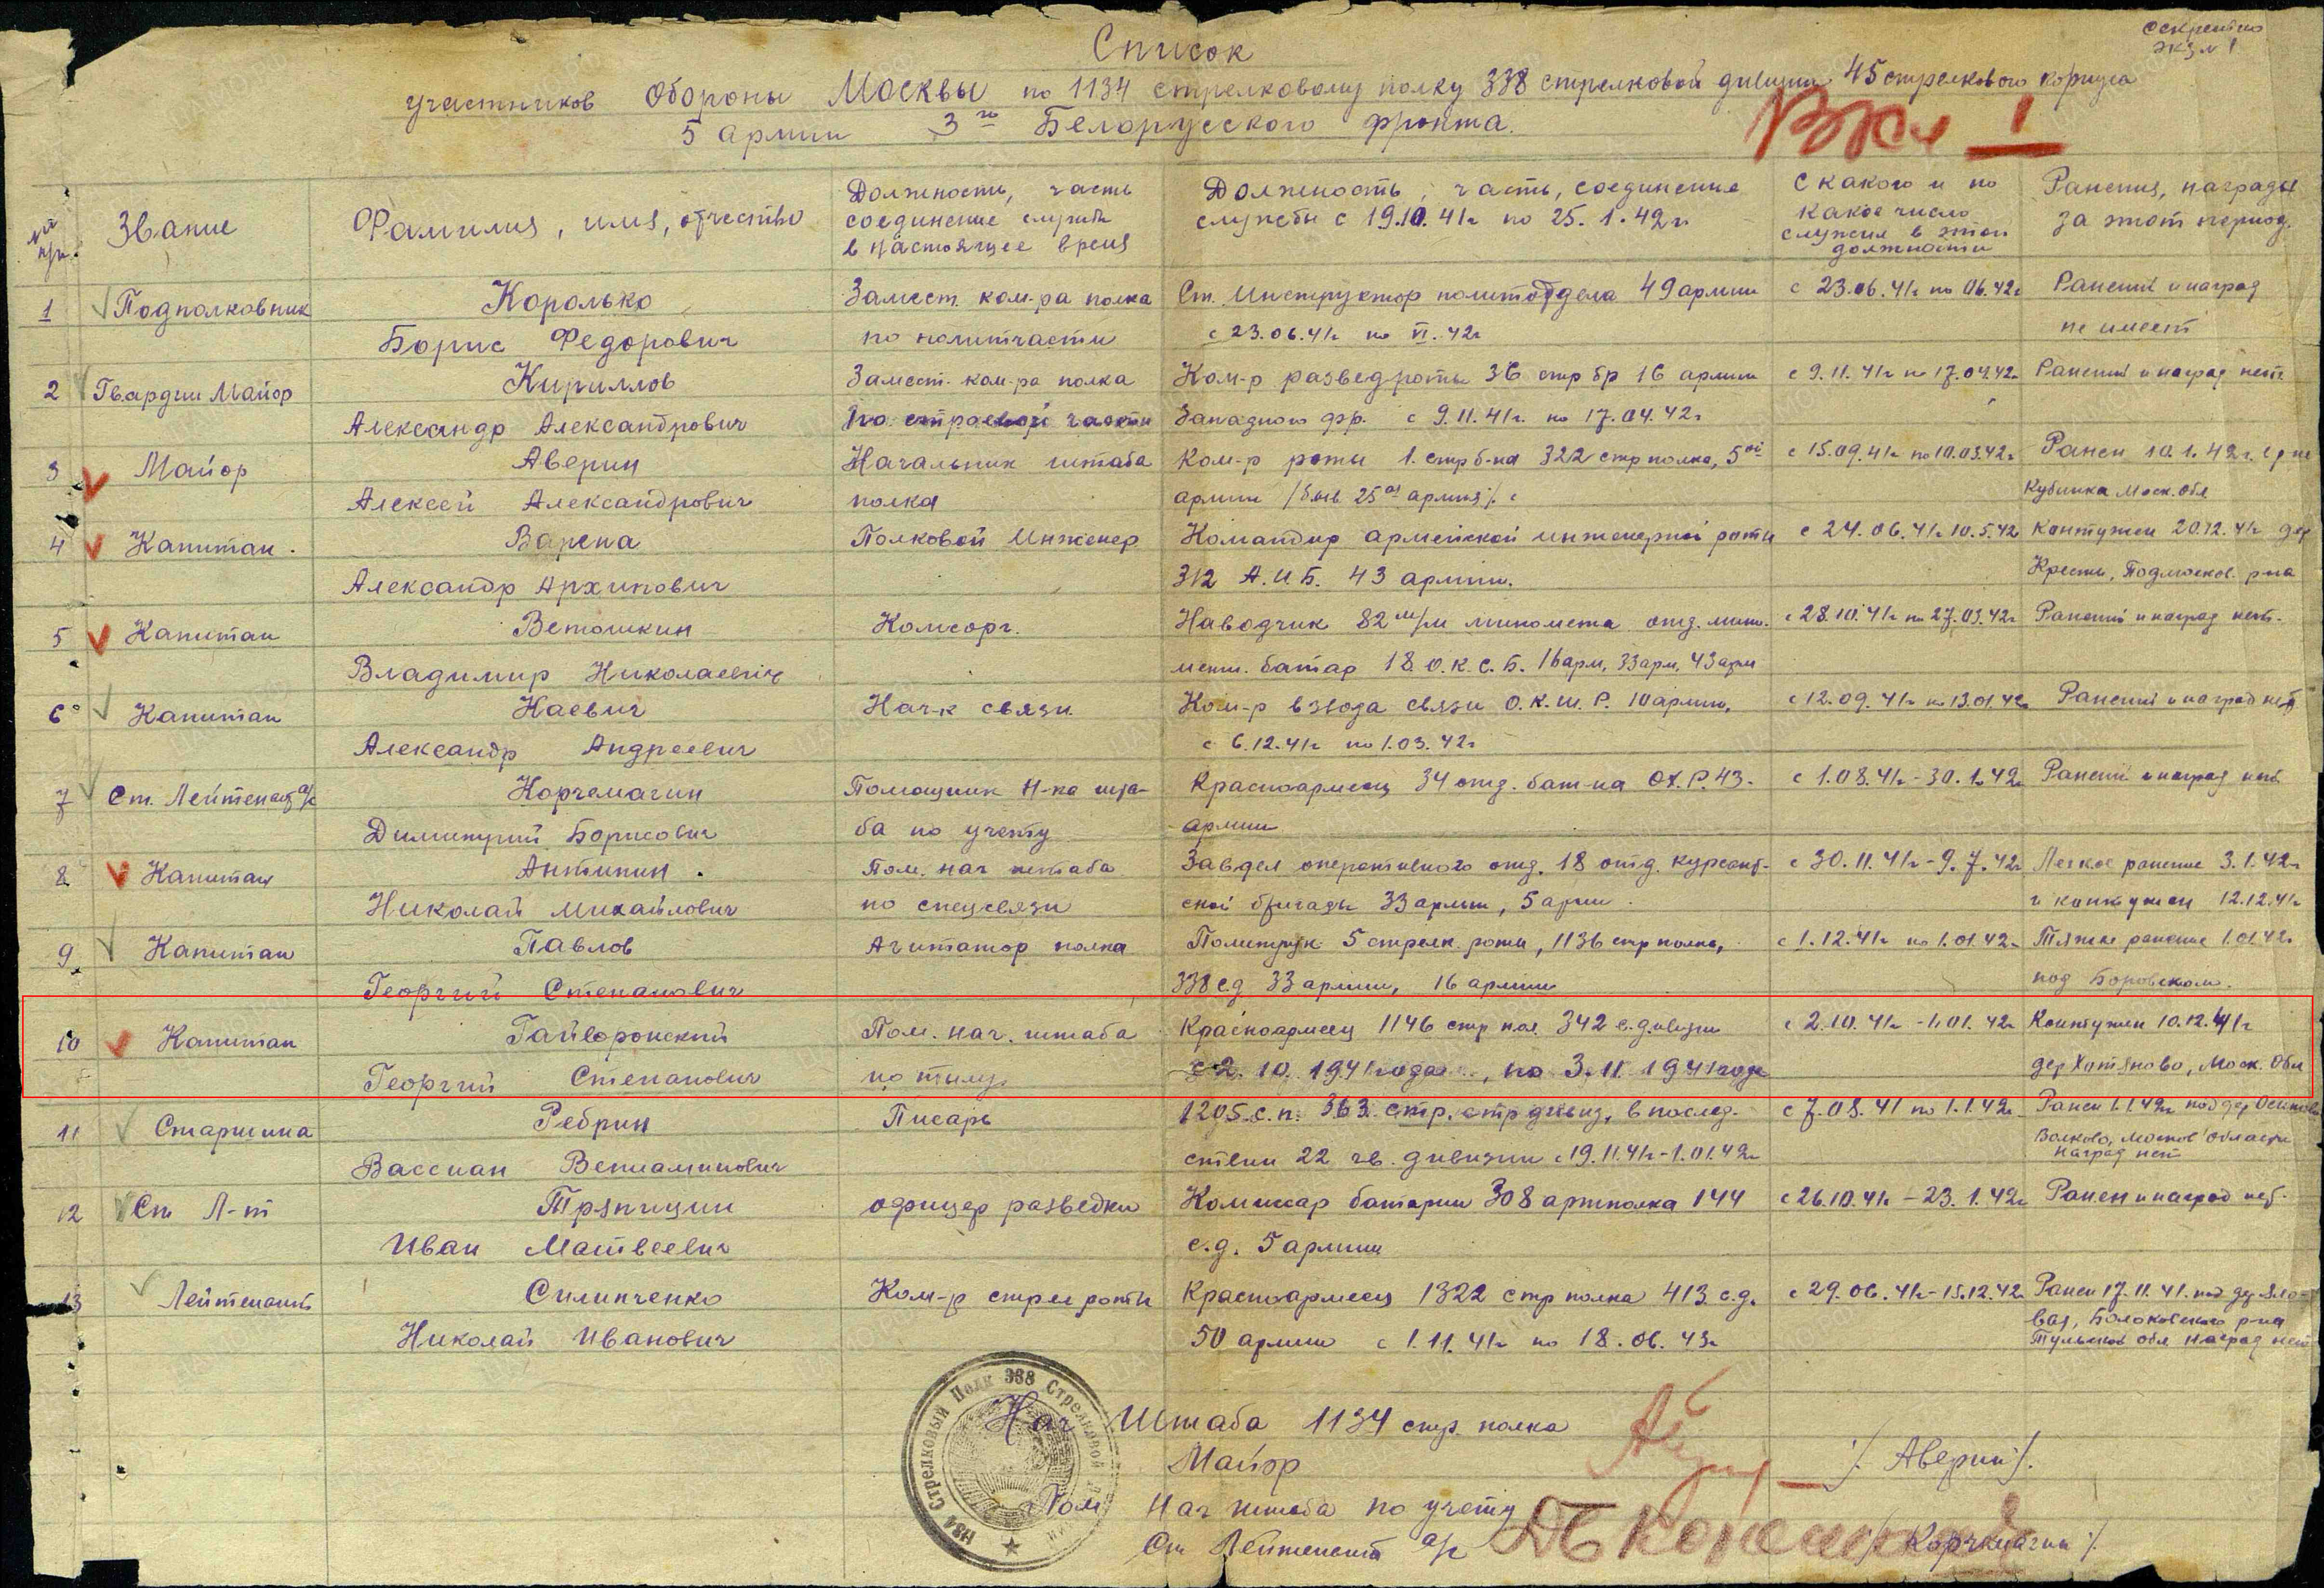 Секретно
экз № 1
Список
участников Обороны Москвы по 1134 стрелковому полку 338 стрелковой дивизии 45 стрелкового корпуса
5 армии 3го Белорусского фронта.
№№ п/п.
Звание
Фамилия, имя, отчество
Должность, часть
соединение службы
в настоящее время
Должность, часть, соединение
службы с 19.10.41г по 25.1.42г.
С какого и по
какое число
служил в этой
должности
Ранения, награды
за этот период.
1 Подполковник Королько Замест. ком-ра полка Ст. Инструктор политотдела 49 армии с 23.06.41г по 06.42г Ранений и наград
Борис Федорович по политчасти с 23.06.41г по VI.42г не имеет
2 Гвардии Майор Кириллов Замест. ком-ра полка Ком-р разведроты 36 стр бр 16 армии с 9.11.41г по 17.04.42г Ранений и наград нет
Александр Александрович по строевой части Западного фр. с 9.11.41г. по 17.04.42г
3 Майор Аверин Начальник штаба Ком-р роты 1. стр б-на 322 стр полка, 5ой с 15.09.41г по 10.03.42г Ранен 10.1.42г.
Алексей Александрович полка армии /быв 25ая армия/. с Кубинка Моск. Обл
4 Капитан. Варена Полковой Инженер Командир армейской инженерной роты с 24.06.41г 10.5.42 Контужен 20.12.41г дер
Александр Архипович 312 А.И.Б. 43 армии. Кресты, Подмосков. р-на
5 Капитан Ветошкин Комсорг. Наводчик 82 м/м миномета отд. мин. с 28.10.41г по 27.03.42г Ранений и наград нет.
Владимир Николаевич батар 18 О.К.С.Б. 16 арм, 33 арм, 43 арм
6 Капитан Каевич Нач-к связи Ком-р взвода связи О.К.Ш.Р. 10 армии, с 12.09.41г по 13.01.42г Ранений и наград нет
Александр Андреевич с 6.12.41г по 1.03.42г
7 Ст. Лейтенант а/с Корчемагин Помощник Н-ка шта- Красноармеец 34 отд. бат-на ОХ.Р. 43- с 1.08.41г - 30.1.42г Ранений и наград нет
Димитрий Борисович ба по учету армии
8 Капитан Антипин. Пом. нач штаба Завдел оперативного отд. 18 отд. курсант- с 30.11.41г - 9.7.42г Легкое ранение 3.1.42г
Николай Михайлович по спецсвязи ской бригады 33 армии, 5 арми. и контужен 12.12.41г
9 Капитан Павлов Агитатор полка Политрук 5 стрелк. роты, 1136 стр полка, с 1.12.41г по 1.01.42г Тяжкое ранение 1.01.42г
Георгий Степанович 338 сд 33 армии, 16 армии под Боровском.
10 Капитан Гайворонский Пом. нач. штаба Красноармеец 1146 стр пол. 342 с. дивизии с 2.10.41г - 1.01.42г Контужен 10.12.41г
Георгий Степанович по тылу с 2.10.1941 года, по 3.11.1941 года дер Хатяново, Моск. Обл
11 Старшина Ребрин Писарь 1205 с.п. 363 стр. стр дивиз, в послед- с 7.08.41 по 1.1.42г Ранен 1.1.42г под дер
Вассиан Вениаминович ствии 22 гв. дивизии с 19.11.41г - 1.01.42г Волково, Москов Области
наград нет
12 Ст Л-т Тряпицин офицер разведки Комиссар батареи 308 артполка 144 с 26.10.41г - 23.1.42г Ранен и наград нет.
Иван Матвеевич с.д. 5 армии
13 Лейтенант Силипченко Ком-р стрел роты Красноармеец 1322 стр полка 413 с.д. с 29.06.41г - 15.12.42 Ранен 17.11.41. под дер
Николай Иванович 50 армии с 1.11.41г по 18.06.43г Болоховского р-на
Тульской обл наград нет
Нач Штаба 1134 стр. полка
Майор /Аверин/.
Пом Нач штаба по учету
Ст Лейтенант а/с /Корчемагин/.
1134 Стрелковый Полк 338 Стрелковой